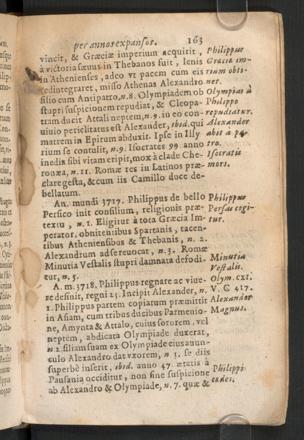 per annos expansos. 163
vincit, & Græciæ imperium acquirit,
à victoria sæuus in Thebanos fuit, lenis
in Athenienses, adeo vt pacem cum eis
redintegraret, misso Athenas Alexandro
filio cum Antipatro, n. 8. Olympiadem ob
stupri suspicionem repudiat, & Cleopa-
tram ducit Attali neptem, n. 9. in eo con-
uiuio periclitatus est Alexander, ibid. qui
matrem in Epirum abduxit. Ipse in Illy
rium se contulit, n. 9. Isocrates 99 anno
inedia sibi vitam eripit, mox à clade Che-
ronæa, n. 11. Romæ res in Latinos præ-
claræ gesta, & cum iis Camillo duce de-
bellatum.
An. mundi 3717. Philippus de bello
Persico init consilium, religionis præ-
textu, n. 1. Eligitur à tota Græcia Im-
perator, obnitentibus Spartanis, tacen-
tibus Atheniensibus & Thebanis, n. 2.
Alexandrum ad se reuocat, n. 3. Romæ
Minutia Vestalis stupri damnata defodi-
tur, n. 5.
A. m. 3718. Philippus regnare ac viue-
re desinit, regni 25. Incipit Alexander, n.
1. Philippus partem copiarum præmittit
in Asiam, cum tribus ducibus Parmenio-
ne, Amynta & Attalo, cuius sororem, vel
neptem, abdicata Olympiade duxerat,
n. 2. filiam suam ex Olympiade eius auun-
culo Alexandro dat vxorem, n. 3. se diis
superbè inserit, ibid. anno 47. ætatis à
Pausania occiditur, non sine suspicione
ab Alexandro & Olympiade, n. 7. quæ &
Philippus
Græciæ im-
rium obti-
net.
Olympias à
Philippo
repudiatur.
Alexander
abit à pa-
tre.
Isocratis
mors.
Philippus
Persas cogi-
tur.
Minutia
Vestalis.
Olym. cxi.
V. C 417.
Alexander
Magnus.
Philippi
cædes.